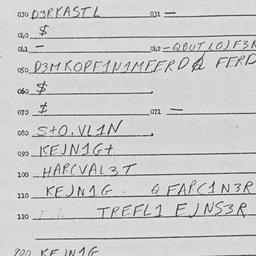 030 D3RKASTL 031 —
040 $
041 — 042 — QBUTLOJF3R
050 D3MKOPF1N1MFFRD FFRD
060 $
070 $ 071 —
080 S+O.VL1N
090 KEJN1G+
100 HARCVAL3T
110 KEJN1G - Q FAPC1N3R
120 TREFL1 EJNS3R
200 KEJN1G